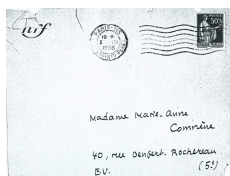 nrf
PARIS-118
1938
50c
Madame Marie-Anne
Comnène
40, rue Denfert-Rochereau
(5e)
E.V.